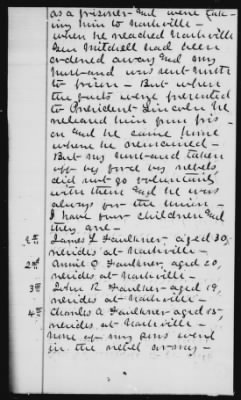 as a prisoner and were tak-
ing him to Nashville -
when he reached Nashville
Gen Mitchell had been
ordered away and my
husband was sent North
to prison - But when
the facts were presented
to President Lincoln he
released him from pris-
on and he came home
where he remained -
But my husband taken
off by force by rebels
did not go voluntary
with them and he was
always for the Union -
I have four children and
they are -
1st James L Faulkner, aged 30,
resides at Nashville -
2nd Annie O Faulkner, aged 20,
resides at Nashville -
3rd John R Faulkner aged 19,
resides at Nashville -
4th Charles A Faulkner aged 15,
resides at Nashville -
None of my sons were
in the rebel army -